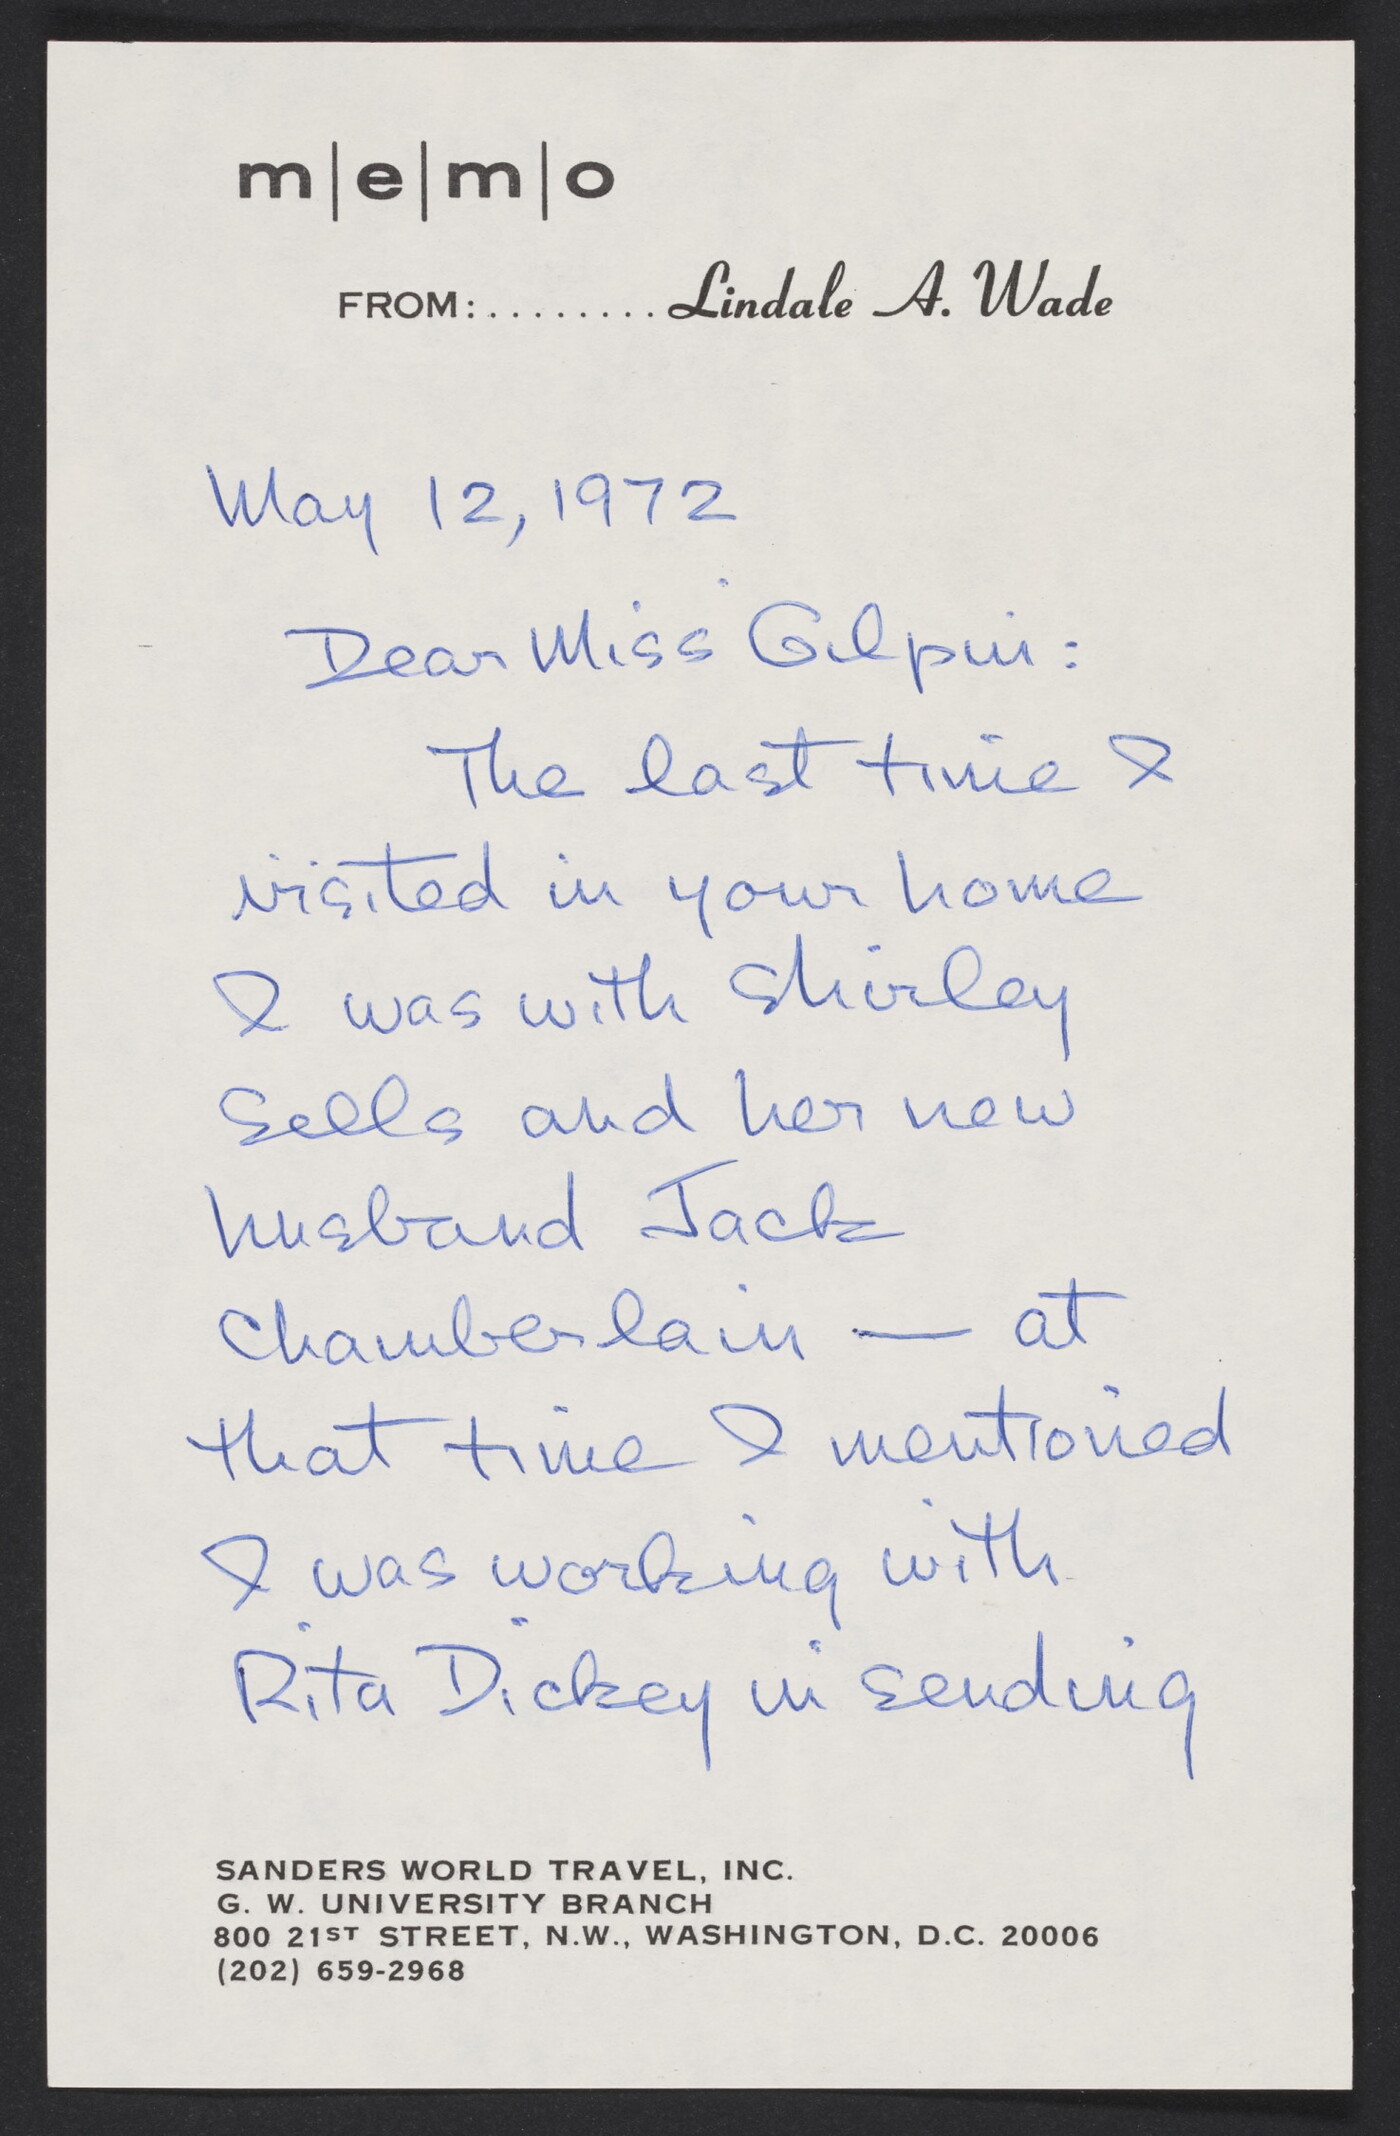 m|e|m|o
FROM:........Lindale A. Wade
May 12, 1972
Dear Miss Gilpin:
The last time I
visited in your home
I was with Shirley
Sells and her new
husband Jack
Chamberlain — at
that time I mentioned
I was working with
Rita Dickey in sending
SANDERS WORLD TRAVEL, INC.
G. W. UNIVERSITY BRANCH
800 21ST STREET, N.W., WASHINGTON, D.C. 20006
(202) 659-2968